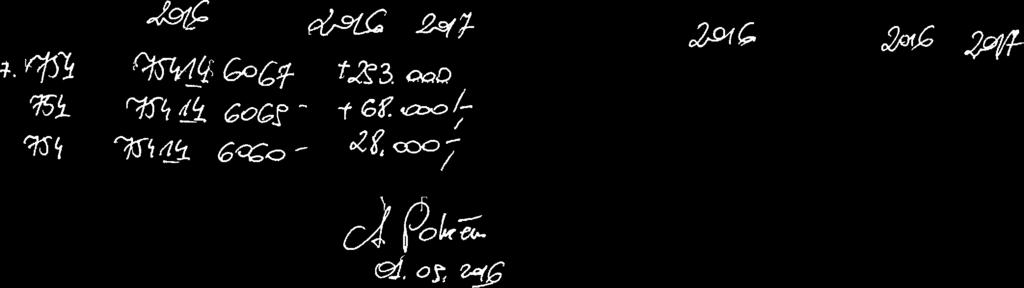 2016 2016 2017 2016 2016 2017
7. 754 75414 6067 +293.000
754 75414 6069- +68.000/-
754 75414 6060- 28.000-/
A
01. 09. 2016